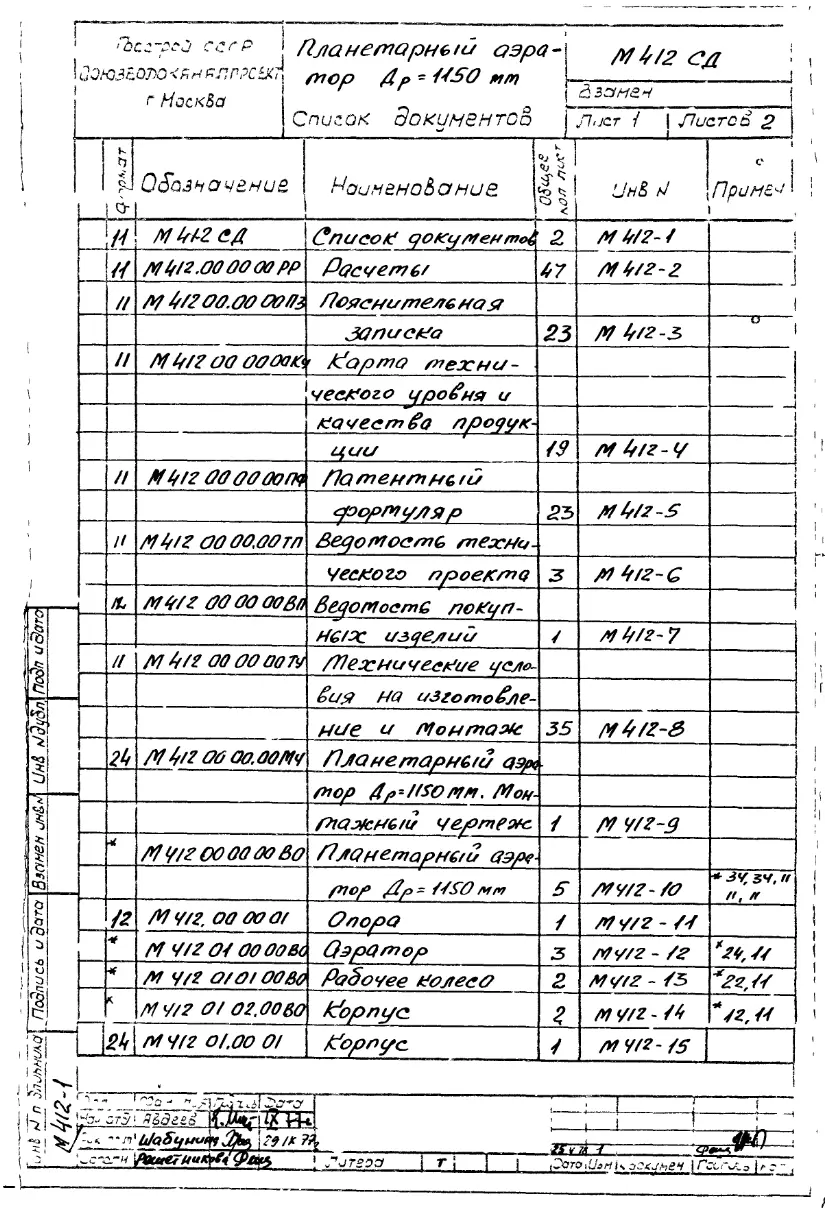 Госстрой СССР
СОЮЗВОДОКАНАЛПРОЕКТ
г Москва
Планетарный аэра-
тор Др=1150 мм
Список документов
М412 СД
Взамен
Лист 1 Листов 2
Формат Обозначение Наименование Общее кол лист Инв № Примеч
11 М412 СД Список документов 2 М412-1
11 М412.00 00 00 РР Расчеты 47 М412-2
11 М412 00.00 00ПЗ Пояснительная
записка 23 М412-3
11 М412 00 00 00КУ Карта техни-
ческого уровня и
качества продук-
ции 19 М412-4
11 М412 00 00 00ПФ Патентный
формуляр 23 М412-5
11 М412 00 00.00ТП Ведомость техни-
ческого проекта 3 М412-6
12 М412 00 00 00ВП Ведомость покуп-
ных изделий 1 М412-7
11 М412 00 00 00ТУ Технические усло-
вия на изготовле-
ние и монтаж 35 М412-8
24 М412 00 00.00МЧ Планетарный аэра-
тор Др=1150 мм. Мон-
тажный чертеж 1 М412-9
* М412 00 00 00 ВО Планетарный аэра-
тор Др=1150 мм 5 М412-10 * 34, 34, 11
11, 11
12 М412. 00 00 01 Опора 1 М412-11
* М412 01 00 00ВО Аэратор 3 М412-12 *24, 11
* М412 01 01 00ВО Рабочее колесо 2 М412-13 *22, 11
* М412 01 02.00ВО Корпус 2 М412-14 *12, 11
24 М412 01.00 01 Корпус 1 М412-15
Подп и дата
Инв № дубл
Взамен инв №
Подпись и дата
Инв № подлинника
М412-1
Дата
Авдеев IX 77г
Шабунина 29 IX 77г
Решетникова
Литера Т
25 V 78 1
Дата Изм № докумен Подпись